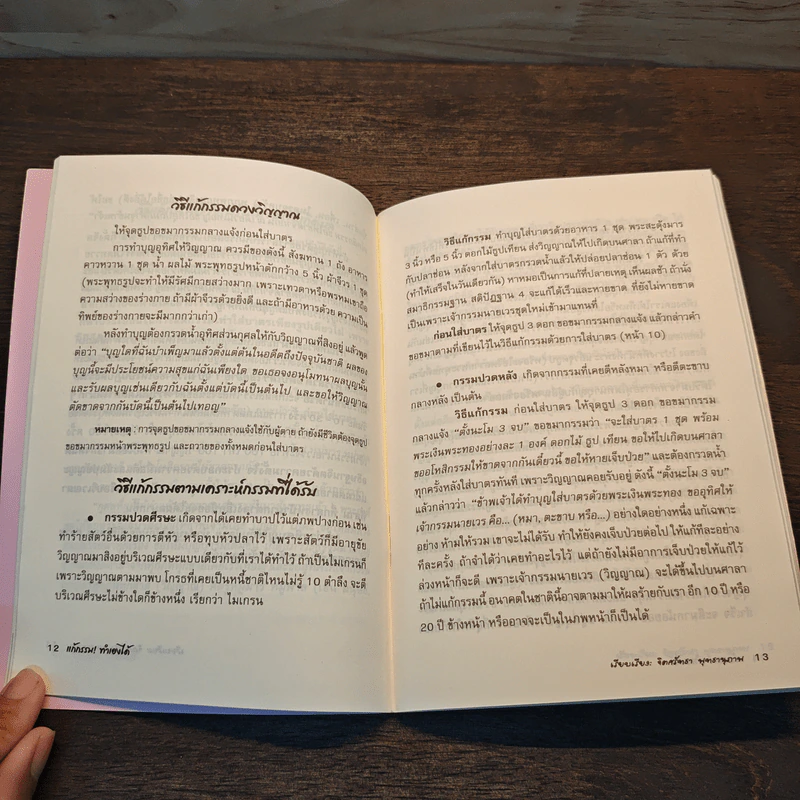 วิธีแก้กรรมดวงวิญญาณ
ให้จุดธูปขอขมากรรมกลางแจ้งก่อนใส่บาตร
การทำบุญอุทิศให้วิญญาณ ควรมีของดังนี้ สังฆทาน 1 ถัง อาหาร
คาวหวาน 1 ชุด น้ำ ผลไม้ พระพุทธรูปหน้าตักกว้าง 5 นิ้ว ผ้าจีวร 1 ชุด
(พระพุทธรูปจะทำให้มีรัศมีกายสว่างมาก เพราะเทวดาหรือพรหมเขาถือ
ความสว่างของร่างกาย ถ้ามีผ้าจีวรด้วยยิ่งดี และถ้ามีอาหารด้วย ความเป็น
ทิพย์ของร่างกายจะมีมากกว่าเก่า)
หลังทำบุญต้องกรวดน้ำอุทิศส่วนกุศลให้กับวิญญาณที่สิงอยู่ แล้วพูด
ต่อว่า "บุญใดที่ฉันบำเพ็ญมาแล้วตั้งแต่ต้นในอดีตถึงปัจจุบันชาติ ผลของ
บุญนี้จะมีประโยชน์ความสุขแก่ฉันเพียงใด ขอเธอจงอนุโมทนาผลบุญนั้น
และรับผลบุญเช่นเดียวกับฉันตั้งแต่บัดนี้เป็นต้นไป และขอให้วิญญาณ
ตัดขาดจากกันบัดนี้เป็นต้นไปเทอญ"
หมายเหตุ : การจุดธูปขอขมากรรมกลางแจ้งใช้กับผู้ตาย ถ้ายังมีชีวิตต้องจุดธูป
ขอขมากรรมหน้าพระพุทธรูป และถวายของทั้งหมดก่อนใส่บาตร
วิธีแก้กรรมตามเคราะห์กรรมที่ได้รับ
● กรรมปวดศีรษะ เกิดจากได้เคยทำบาปไว้แต่ภพปางก่อน เช่น
ทำร้ายสัตว์อื่นด้วยการตีหัว หรือทุบหัวปลาไว้ เพราะสัตว์ก็มีอายุขัย
วิญญาณมาสิงอยู่บริเวณศีรษะแบบเดียวกับที่เราได้ทำไว้ ถ้าเป็นไมเกรนก็
เพราะวิญญาณตามมาพบ โกรธที่เคยเป็นหนี้ชาติไหนไม่รู้ 10 ตำลึง จะตี
บริเวณศีรษะไม่ข้างใดก็ข้างหนึ่ง เรียกว่า ไมเกรน
12 แก้กรรม! ทำเองได้
วิธีแก้กรรม ทำบุญใส่บาตรด้วยอาหาร 1 ชุด พระสะดุ้งมาร
3 นิ้ว หรือ 5 นิ้ว ดอกไม้ธูปเทียน ส่งวิญญาณให้ไปเกิดบนศาลา ถ้าแก้ที่ทำ
กับปลาช่อน หลังจากใส่บาตรกรวดน้ำแล้วให้ปล่อยปลาช่อน 1 ตัว ด้วย
(ทำให้เสร็จในวันเดียวกัน) หาหมอเป็นการแก้ที่ปลายเหตุ เห็นผลช้า ถ้านั่ง
สมาธิกรรมฐาน สติปัฏฐาน 4 จะแก้ได้เร็วและหายขาด ที่ยังไม่หายขาด
เป็นเพราะเจ้ากรรมนายเวรชุดใหม่เข้ามาแทนที่
ก่อนใส่บาตร ให้จุดธูป 3 ดอก ขอขมากรรมกลางแจ้ง แล้วกล่าวคำ
ขอขมาตามที่เขียนไว้ในวิธีแก้กรรมด้วยการใส่บาตร (หน้า 10)
● กรรมปวดหลัง เกิดจากกรรมที่เคยตีหลังหมา หรือตีตะขาบ
กลางหลัง เป็นต้น
วิธีแก้กรรม ก่อนใส่บาตร ให้จุดธูป 3 ดอก ขอขมากรรม
กลางแจ้ง "ตั้งนะโม 3 จบ" ขอขมากรรมว่า "จะใส่บาตร 1 ชุด พร้อม
พระเงินพระทองอย่างละ 1 องค์ ดอกไม้ ธูป เทียน ขอให้ไปเกิดบนศาลา
ขออโหสิกรรมให้ขาดจากกันเดี๋ยวนี้ ขอให้หายเจ็บป่วย" และต้องกรวดน้ำ
ทุกครั้งหลังใส่บาตรทันที เพราะวิญญาณคอยรับอยู่ ดังนี้ "ตั้งนะโม 3 จบ"
แล้วกล่าวว่า "ข้าพเจ้าได้ทำบุญใส่บาตรด้วยพระเงินพระทอง ขออุทิศให้
เจ้ากรรมนายเวร คือ... (หมา, ตะขาบ หรือ...) อย่างใดอย่างหนึ่ง แก้เฉพาะ
อย่าง ห้ามให้รวม เขาจะไม่ได้รับ ทำให้ยังคงเจ็บป่วยต่อไป ให้แก้ทีละอย่าง
ทีละครั้ง ถ้าจำได้ว่าเคยทำอะไรไว้ แต่ถ้ายังไม่มีอาการเจ็บป่วยให้แก้ไว้
ล่วงหน้าก็จะดี เพราะเจ้ากรรมนายเวร (วิญญาณ) จะได้ขึ้นไปบนศาลา
ถ้าไม่แก้กรรมนี้ อนาคตในชาตินี้อาจตามมาให้ผลร้ายกับเรา อีก 10 ปี หรือ
20 ปี ข้างหน้า หรืออาจจะเป็นในภพหน้าก็เป็นได้
เรียบเรียง: จิตตวัทธา พุทธานุภาพ |13